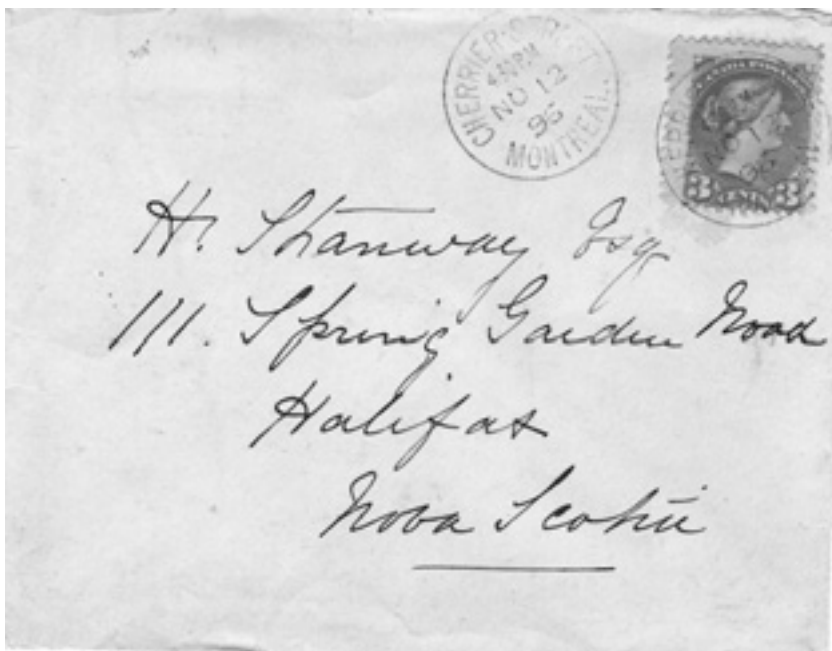 CHERRIER-STREET.
4 30 PM
NO 12
96
MONTREAL.
CANADA POSTAGE
NO 12
96
3 CENTS 3
H. Stanway Esq.
111. Spring Garden Road
Halifax
Nova Scotia